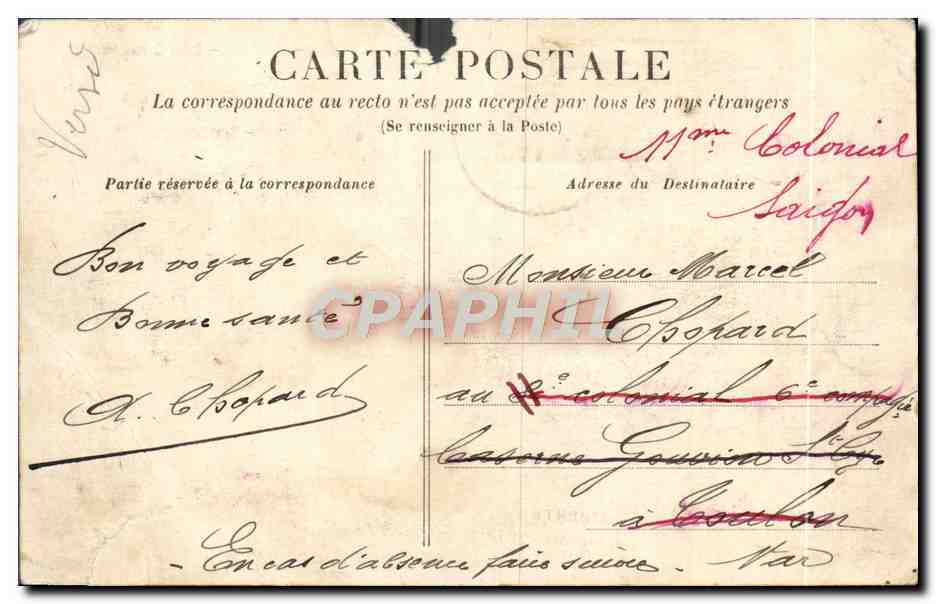 Verso
CARTE POSTALE
La correspondance au recto n'est pas acceptée par tous les pays étrangers
(Se renseigner à la Poste)
11me Colonial
Saigon
Partie réservée à la correspondance
Adresse du Destinataire
Bon voyage et
Bonne santé
A. Chopard
Monsieur Marcel
Chopard
au 11 colonial 6e compagie
Caserne Gouvion St Cyr
à Toulon
Var
- En cas d'absence faire suivre -
CPAPHIL